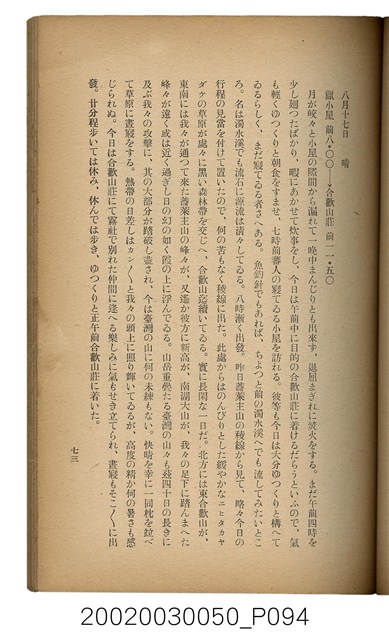 八月十七日　晴
獵小屋　前八・〇〇　→合歡山莊　前一一・五〇
月が皎々と小屋の隙間から漏れて一晩中まんじりとも出來す、退屈まぎれに焚火をする。まだ午前四時を
少し廻つたばかり、暇にあかせて炊事をし、今日は午前中に目的の合歡山莊に着けるだらうといふので、氣
も輕くゆつくりと朝食をすませ、七時前蕃人の寢てゐる小屋を訪れる。彼等も今日は大分ゆつくりと構へて
ゐるらしく、まだ寢てゐる者さへある。魚釣針でもあれば、ちよつと前の濁水溪へでも流してみたいとこ
ろ。名は濁水溪でも流石に源流は淸々してゐる。八時漸く出發。昨日蔆萊主山の稜線から見て、略々今日の
行程の見當を付けて置いたので、何の苦もなく稜線に出た。此處からはのんびりとした緩やかなニヒタカヤ
ダケの草原が處々に黑い森林帶を交じへ、合歡山迄續いてゐる。實に長閑な一日だ。北方には東合歡山が、
東南には我々が通つて來た蔆萊主山の峰々が、又遙か彼方に新高が、南湖大山が、我々の足下に踏んまへた
峰々が遠く或は近く過ぎし日の幻の如く霞の上に浮んでゐる。山岳重疊たる臺灣の山々も玆四十日の長きに
及ぶ我々の攻擊に、其の大部分が踏破し盡され、今は臺灣の山に何の未練もない。快晴を幸に一同枕を竝べ
て草原に晝寢をする。熱帶の日差しはカン〳〵と我々の頭上に照り輝いてゐるが、高度の精か何の暑さも感
じられぬ。今日は合歡山莊にて霧社で別れた仲間に逢へる樂しみに氣もせき立てられ、晝寢もそこ〳〵に出
發。廿分程步いては休み、休んでは步き、ゆつくりと正午前合歡山莊に着いた。
七三
20020030050_P094